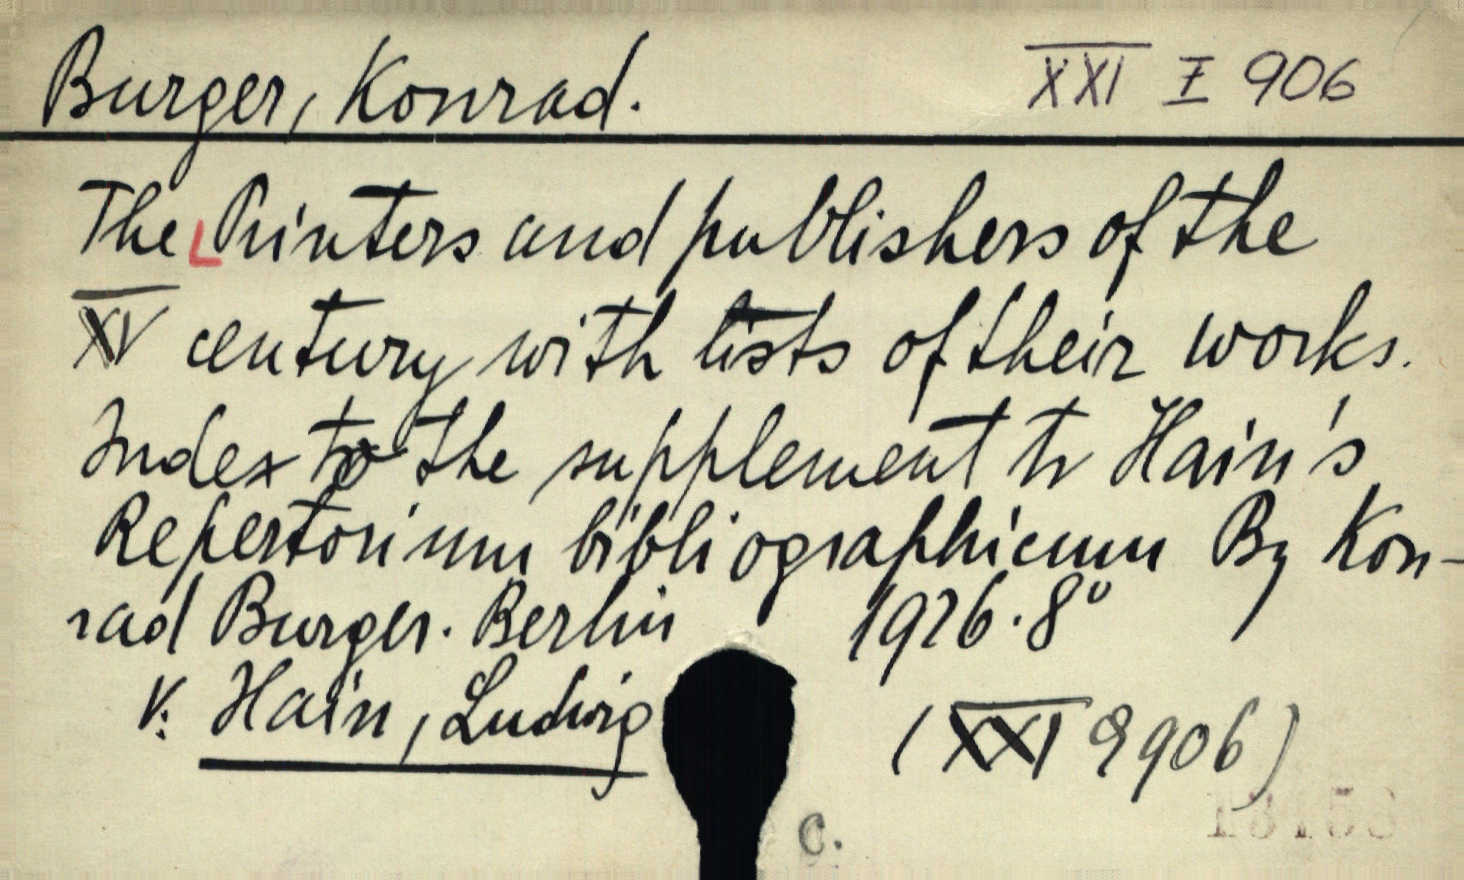 Burger, Konrad.
XXI I 906
The Printers and publishers of the
XV century with lists of their works.
Index to the supplement to Hain's
Repertorium bibliographicum By Kon-
rad Burger. Berlin 1926. 8°
V: Hain, Ludwig
(XXI 906)
c.